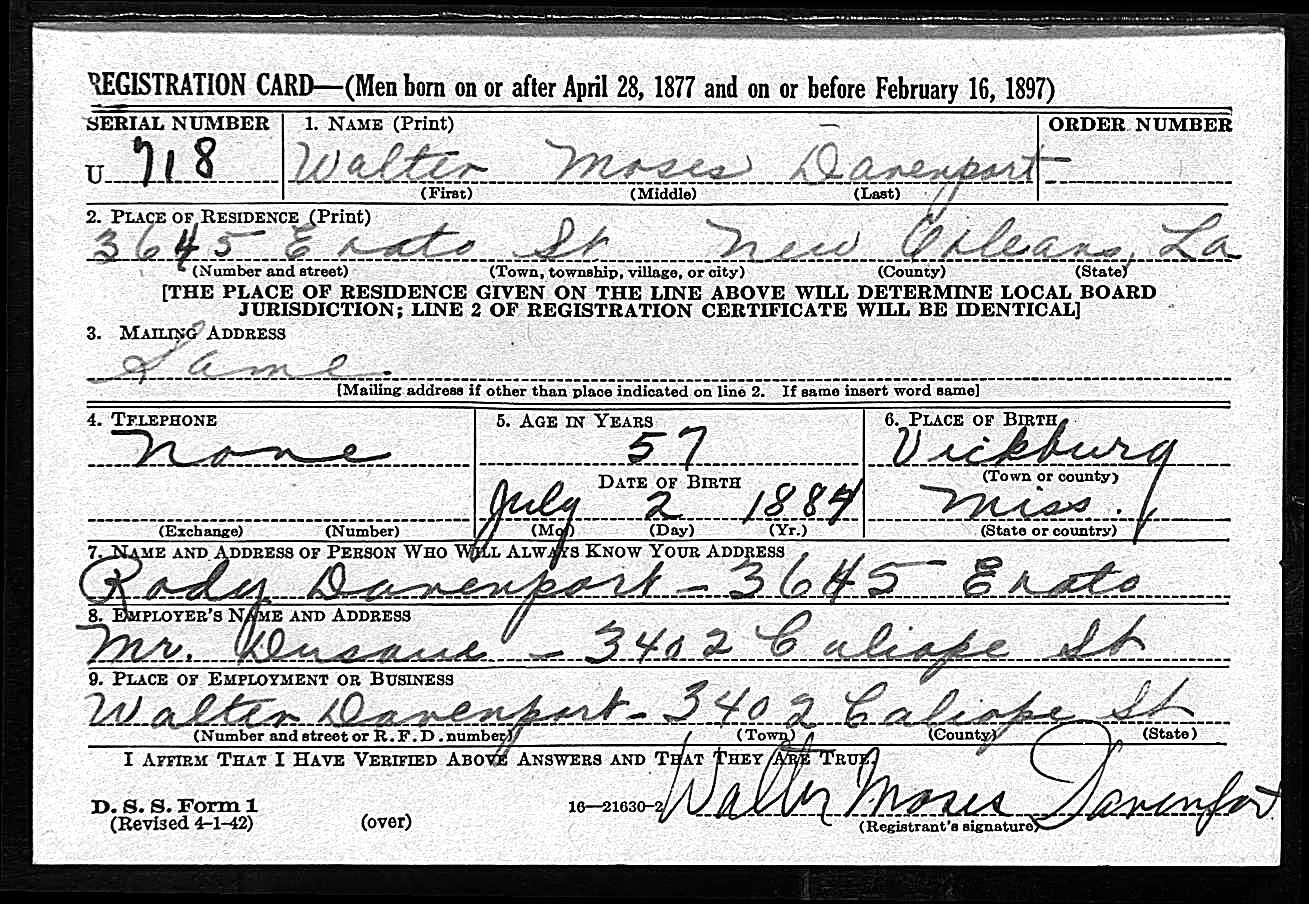 REGISTRATION CARD—(Men born on or after April 28, 1877 and on or before February 16, 1897)
SERIAL NUMBER 1. NAME (Print) ORDER NUMBER
U 718 Walter Moses Davenport
(First) (Middle) (Last)
2. PLACE OF RESIDENCE (Print)
3645 Erato St New Orleans, La
(Number and street) (Town, township, village, or city) (County) (State)
[THE PLACE OF RESIDENCE GIVEN ON THE LINE ABOVE WILL DETERMINE LOCAL BOARD
JURISDICTION; LINE 2 OF REGISTRATION CERTIFICATE WILL BE IDENTICAL]
3. MAILING ADDRESS
Same
[Mailing address if other than place indicated on line 2. If same insert word same]
4. TELEPHONE 5. AGE IN YEARS 6. PLACE OF BIRTH
None 57 Vickburg
(Town or county)
DATE OF BIRTH
July 2 1884 Miss.
(Exchange) (Number) (Mo.) (Day) (Yr.) (State or country)
7. NAME AND ADDRESS OF PERSON WHO WILL ALWAYS KNOW YOUR ADDRESS
Rody Davenport - 3645 Erato
8. EMPLOYER'S NAME AND ADDRESS
Mr. - 3402 Caliope St
9. PLACE OF EMPLOYMENT OR BUSINESS
Walter Davenport - 3402 Caliope St
(Number and street or R. F. D. number) (Town) (County) (State)
I AFFIRM THAT I HAVE VERIFIED ABOVE ANSWERS AND THAT THEY ARE TRUE.
D. S. S. Form 1 16—21630-2 Walter Moses Davenport
(Revised 4-1-42) (over) (Registrant's signature)